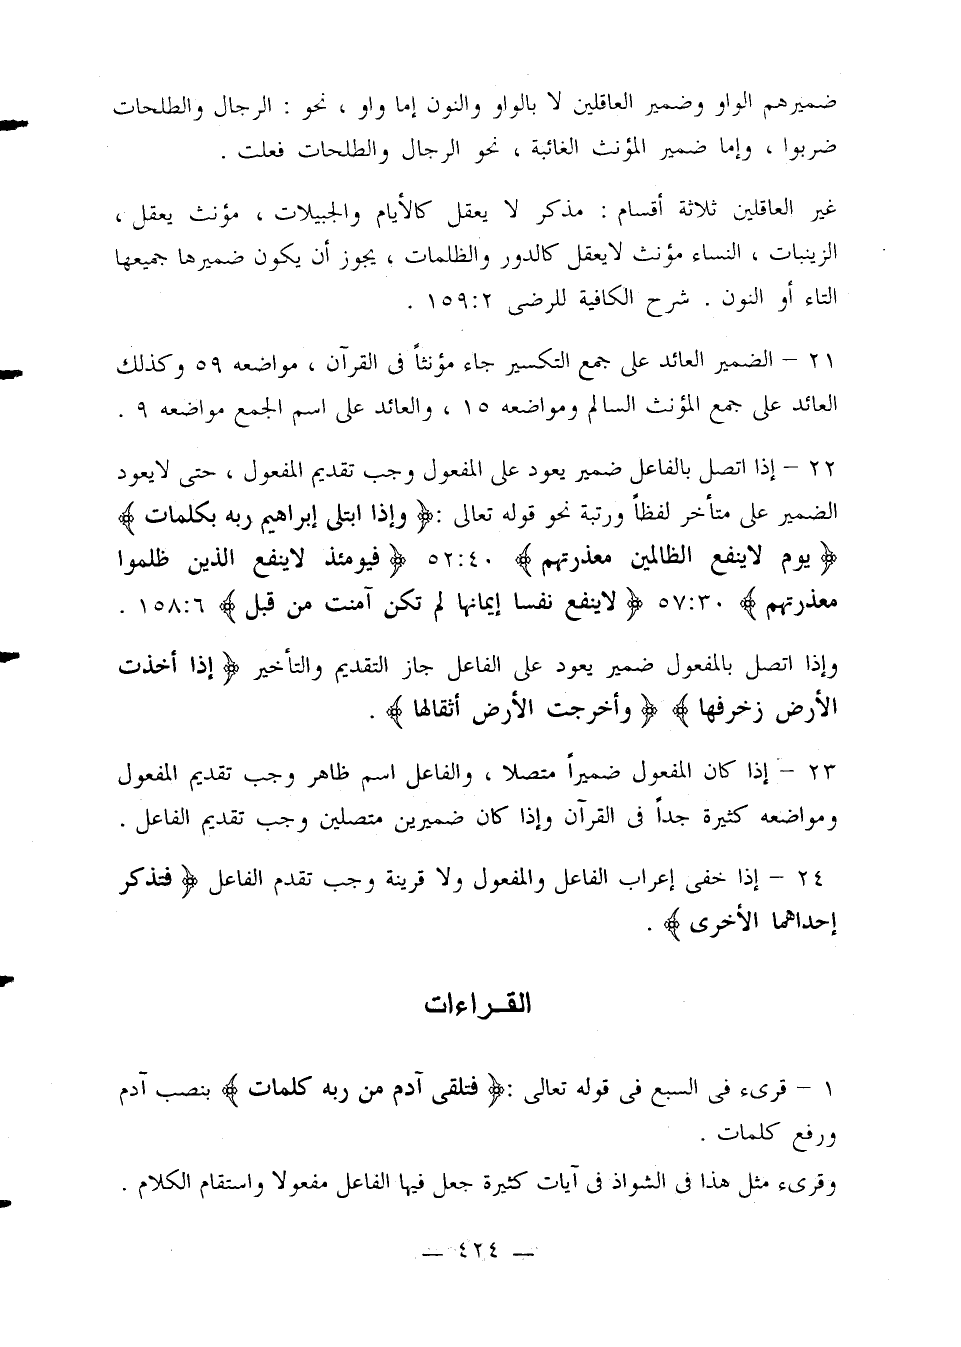 ضميرهم الواو وضمير العاقلين لا بالواو والنون إما واو ، نحو : الرجال والطلحات
ضربوا ، وإما ضمير المؤنث الغائبة ، نحو الرجال والطلحات فعلت .
غير العاقلين ثلاثة أقسام : مذكر لا يعقل كالأيام والجبيلات ، مؤنث يعقل ،
الزينبات ، النساء مؤنث لايعقل كالدور والظلمات ، يجوز أن يكون ضميرها جميعها
التاء أو النون . شرح الكافية للرضى ١٥٩:٢ .
٢١ – الضمير العائد على جمع التكسير جاء مؤنثاً فى القرآن ، مواضعه ٥٩ وكذلك
العائد على جمع المؤنث السالم ومواضعه ١٥ ، والعائد على اسم الجمع مواضعه ٩ .
٢٢ – إذا اتصل بالفاعل ضمير يعود على المفعول وجب تقديم المفعول ، حتى لايعود
الضمير على متأخر لفظاً ورتبة نحو قوله تعالى :﴿ وإذا ابتلى إبراهيم ربه بكلمات ﴾
﴿ يوم لاينفع الظالمين معذرتهم ﴾ ٥٢:٤٠ ﴿ فيومئذ لاينفع الذين ظلموا
معذرتهم ﴾ ٥٧:٣٠ ﴿ لاينفع نفسا إيمانها لم تكن آمنت من قبل ﴾ ١٥٨:٦ .
وإذا اتصل بالمفعول ضمير يعود على الفاعل جاز التقديم والتأخير ﴿ إذا أخذت
الأرض زخرفها ﴾ ﴿ وأخرجت الأرض أثقالها ﴾ .
٢٣ – إذا كان المفعول ضميراً متصلا ، والفاعل اسم ظاهر وجب تقديم المفعول
ومواضعه كثيرة جداً فى القرآن وإذا كان ضميرين متصلين وجب تقديم الفاعل .
٢٤ – إذا خفى إعراب الفاعل والمفعول ولا قرينة وجب تقدم الفاعل ﴿ فتذكر
إحداهما الأخرى ﴾ .
القراءات
١ – قرىء فى السبع فى قوله تعالى :﴿ فتلقى آدم من ربه كلمات ﴾ بنصب آدم
ورفع كلمات .
وقرىء مثل هذا فى الشواذ فى آيات كثيرة جعل فيها الفاعل مفعولا واستقام الكلام .
— ٤٢٤ —